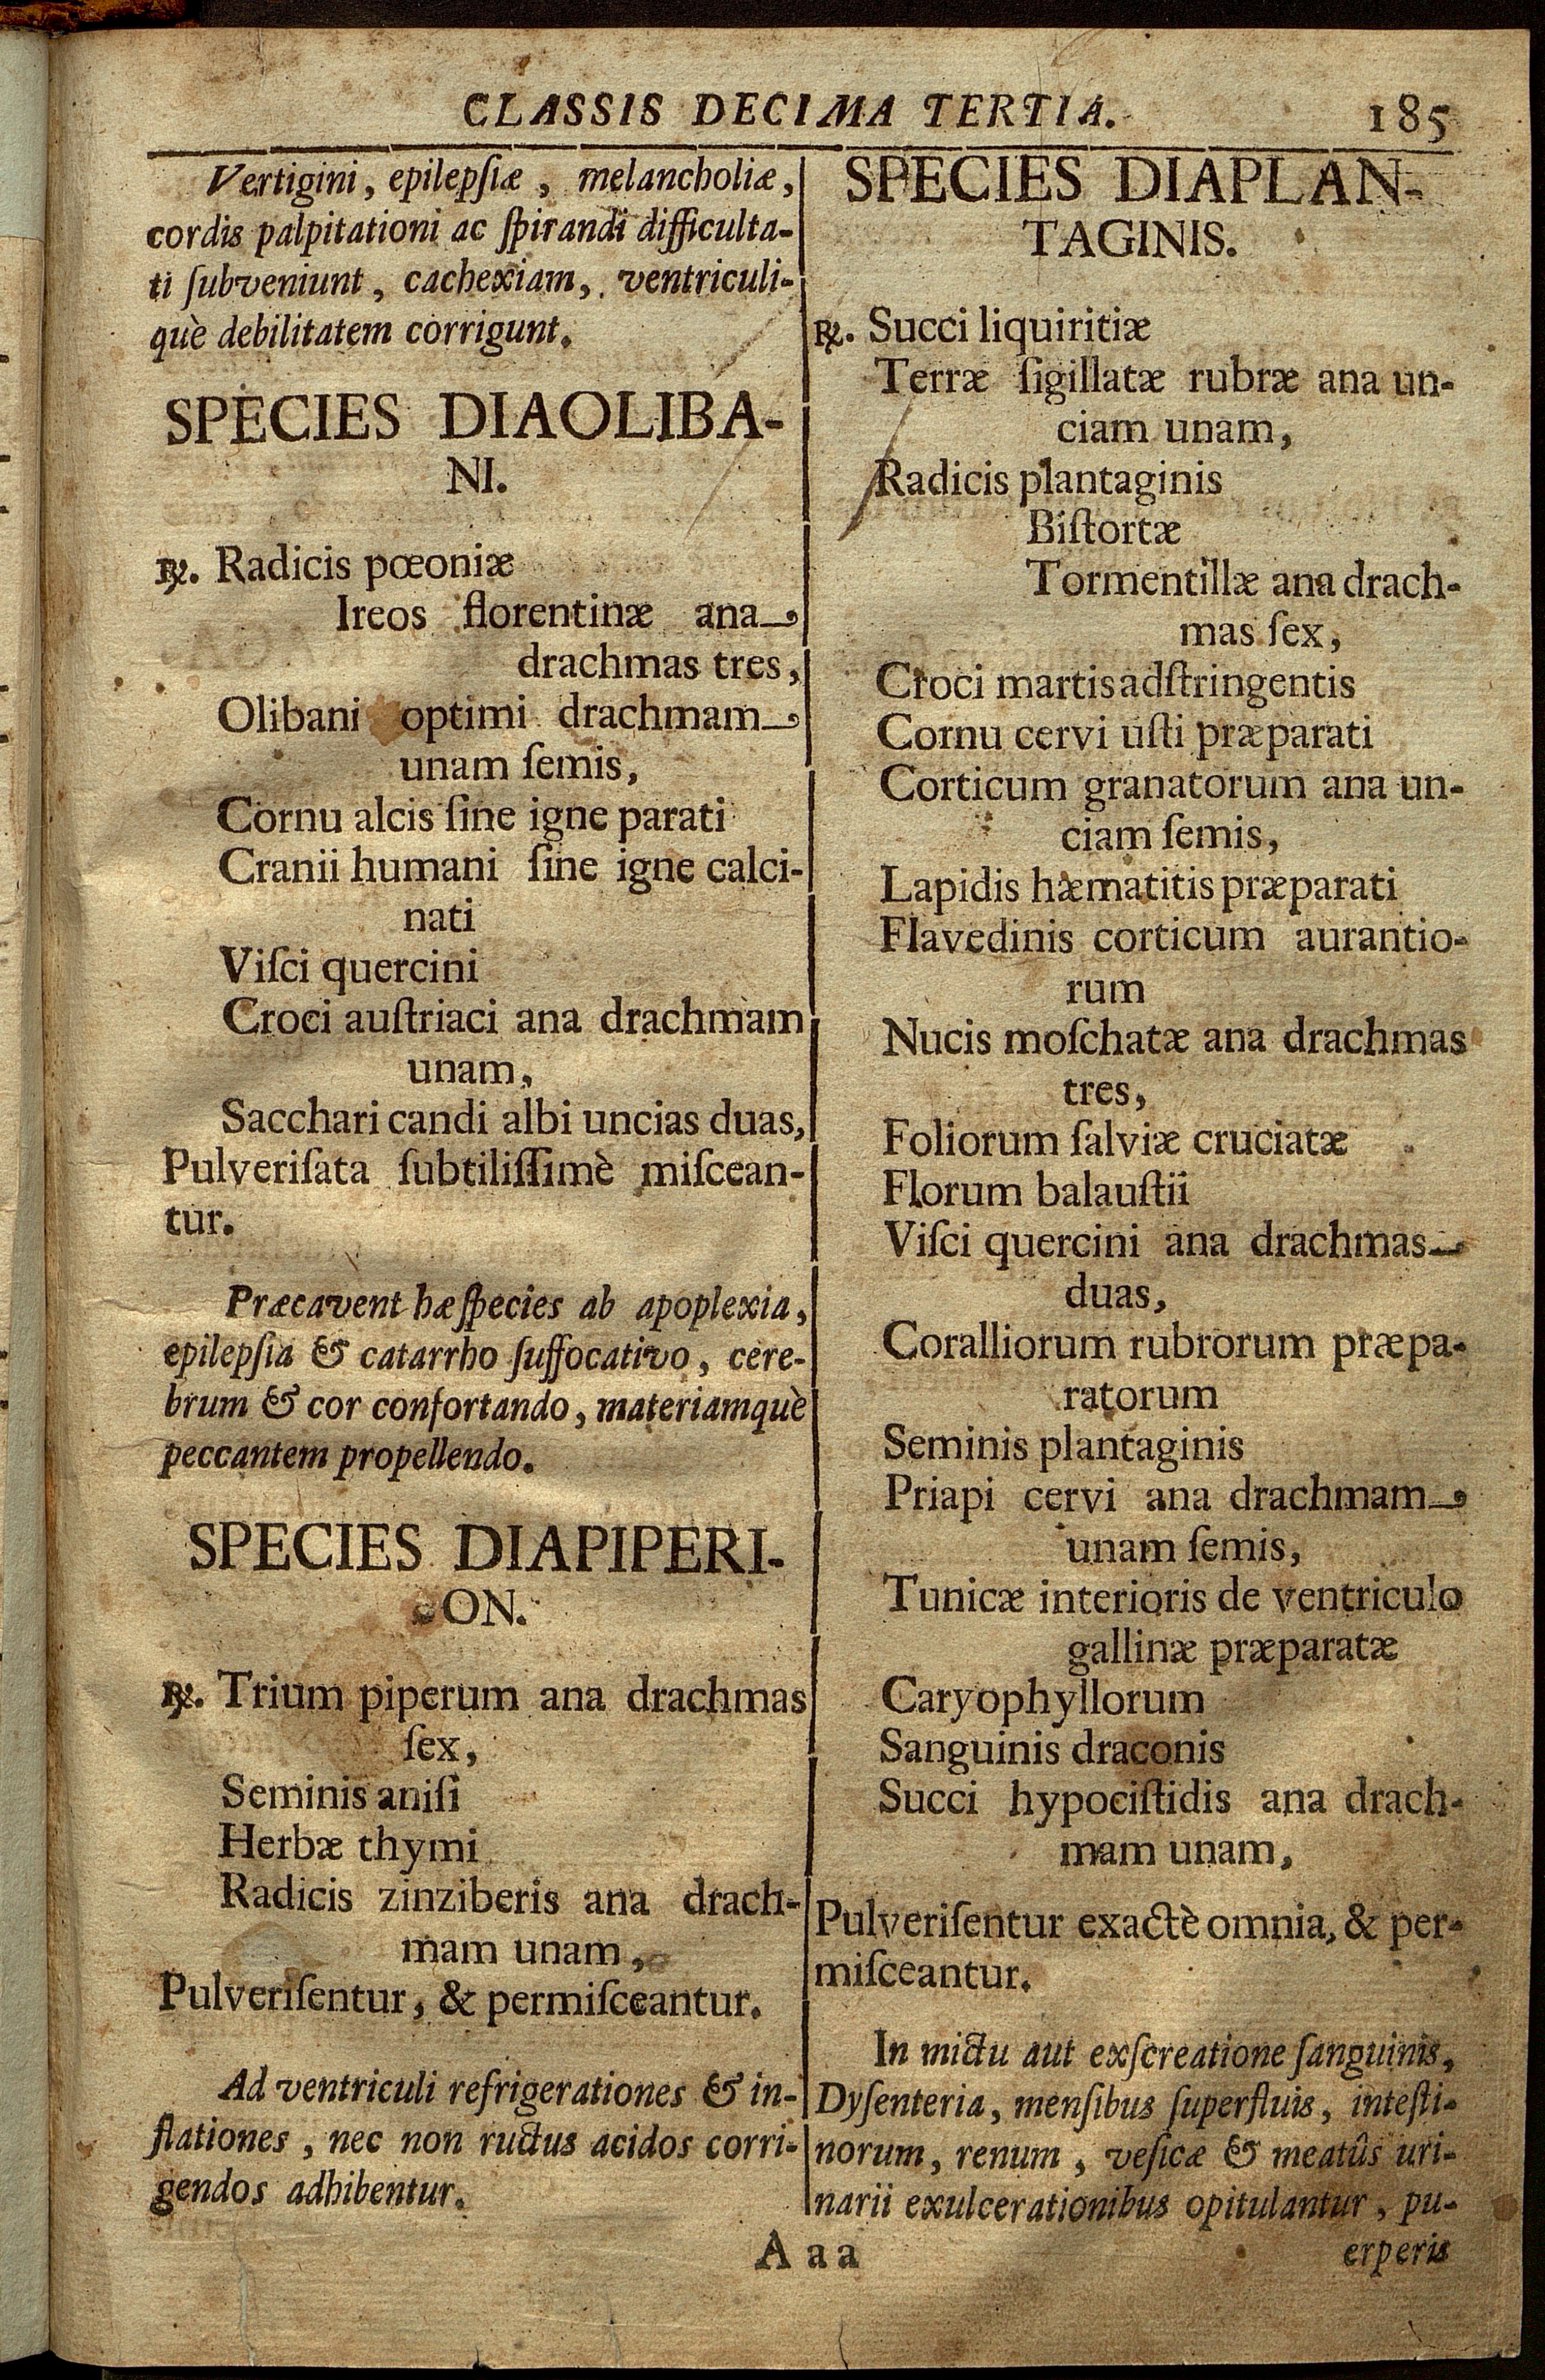 CLASSIS DECIMA TERTIA. 185
Vertigini, epilepſiæ, melancholiæ,
cordis palpitationi ac ſpirandi difficulta-
ti ſubveniunt, cachexiam, ventriculi-
què debilitatem corrigunt.
SPECIES DIAOLIBA-
NI.
℞. Radicis pœoniæ
Ireos florentinæ ana
drachmas tres,
Olibani optimi drachmam
unam ſemis,
Cornu alcis ſine igne parati
Cranii humani ſine igne calci-
nati
Viſci quercini
Croci auſtriaci ana drachmam
unam,
Sacchari candi albi uncias duas,
Pulveriſata ſubtiliſſimè miſcean-
tur.
Præcavent hæ ſpecies ab apoplexia,
epilepſia & catarrho ſuffocativo, cere-
brum & cor confortando, materiamquè
peccantem propellendo.
SPECIES DIAPIPERI-
ON.
℞. Trium piperum ana drachmas
ſex,
Seminis aniſi
Herbæ thymi
Radicis zinziberis ana drach-
mam unam,
Pulveriſentur, & permiſceantur.
Ad ventriculi refrigerationes & in-
flationes, nec non ructus acidos corri-
gendos adhibentur.
SPECIES DIAPLAN-
TAGINIS.
℞. Succi liquiritiæ
Terræ ſigillatæ rubræ ana un-
ciam unam,
Radicis plantaginis
Biſtortæ
Tormentillæ ana drach-
mas ſex,
Croci martis adſtringentis
Cornu cervi uſti præparati
Corticum granatorum ana un-
ciam ſemis,
Lapidis hæmatitis præparati
Flavedinis corticum aurantio-
rum
Nucis moſchatæ ana drachmas
tres,
Foliorum ſalviæ cruciatæ
Florum balauſtii
Viſci quercini ana drachmas
duas,
Coralliorum rubrorum præpa-
ratorum
Seminis plantaginis
Priapi cervi ana drachmam
unam ſemis,
Tunicæ interioris de ventriculo
gallinæ præparatæ
Caryophyllorum
Sanguinis draconis
Succi hypociſtidis ana drach-
mam unam,
Pulveriſentur exactè omnia, & per-
miſceantur.
In mictu aut exſcreatione ſanguinis,
Dyſenteria, menſibus ſuperfluis, inteſti-
norum, renum, veſicæ & meatûs uri-
narii exulcerationibus opitulantur, pu-
Aaa erperis